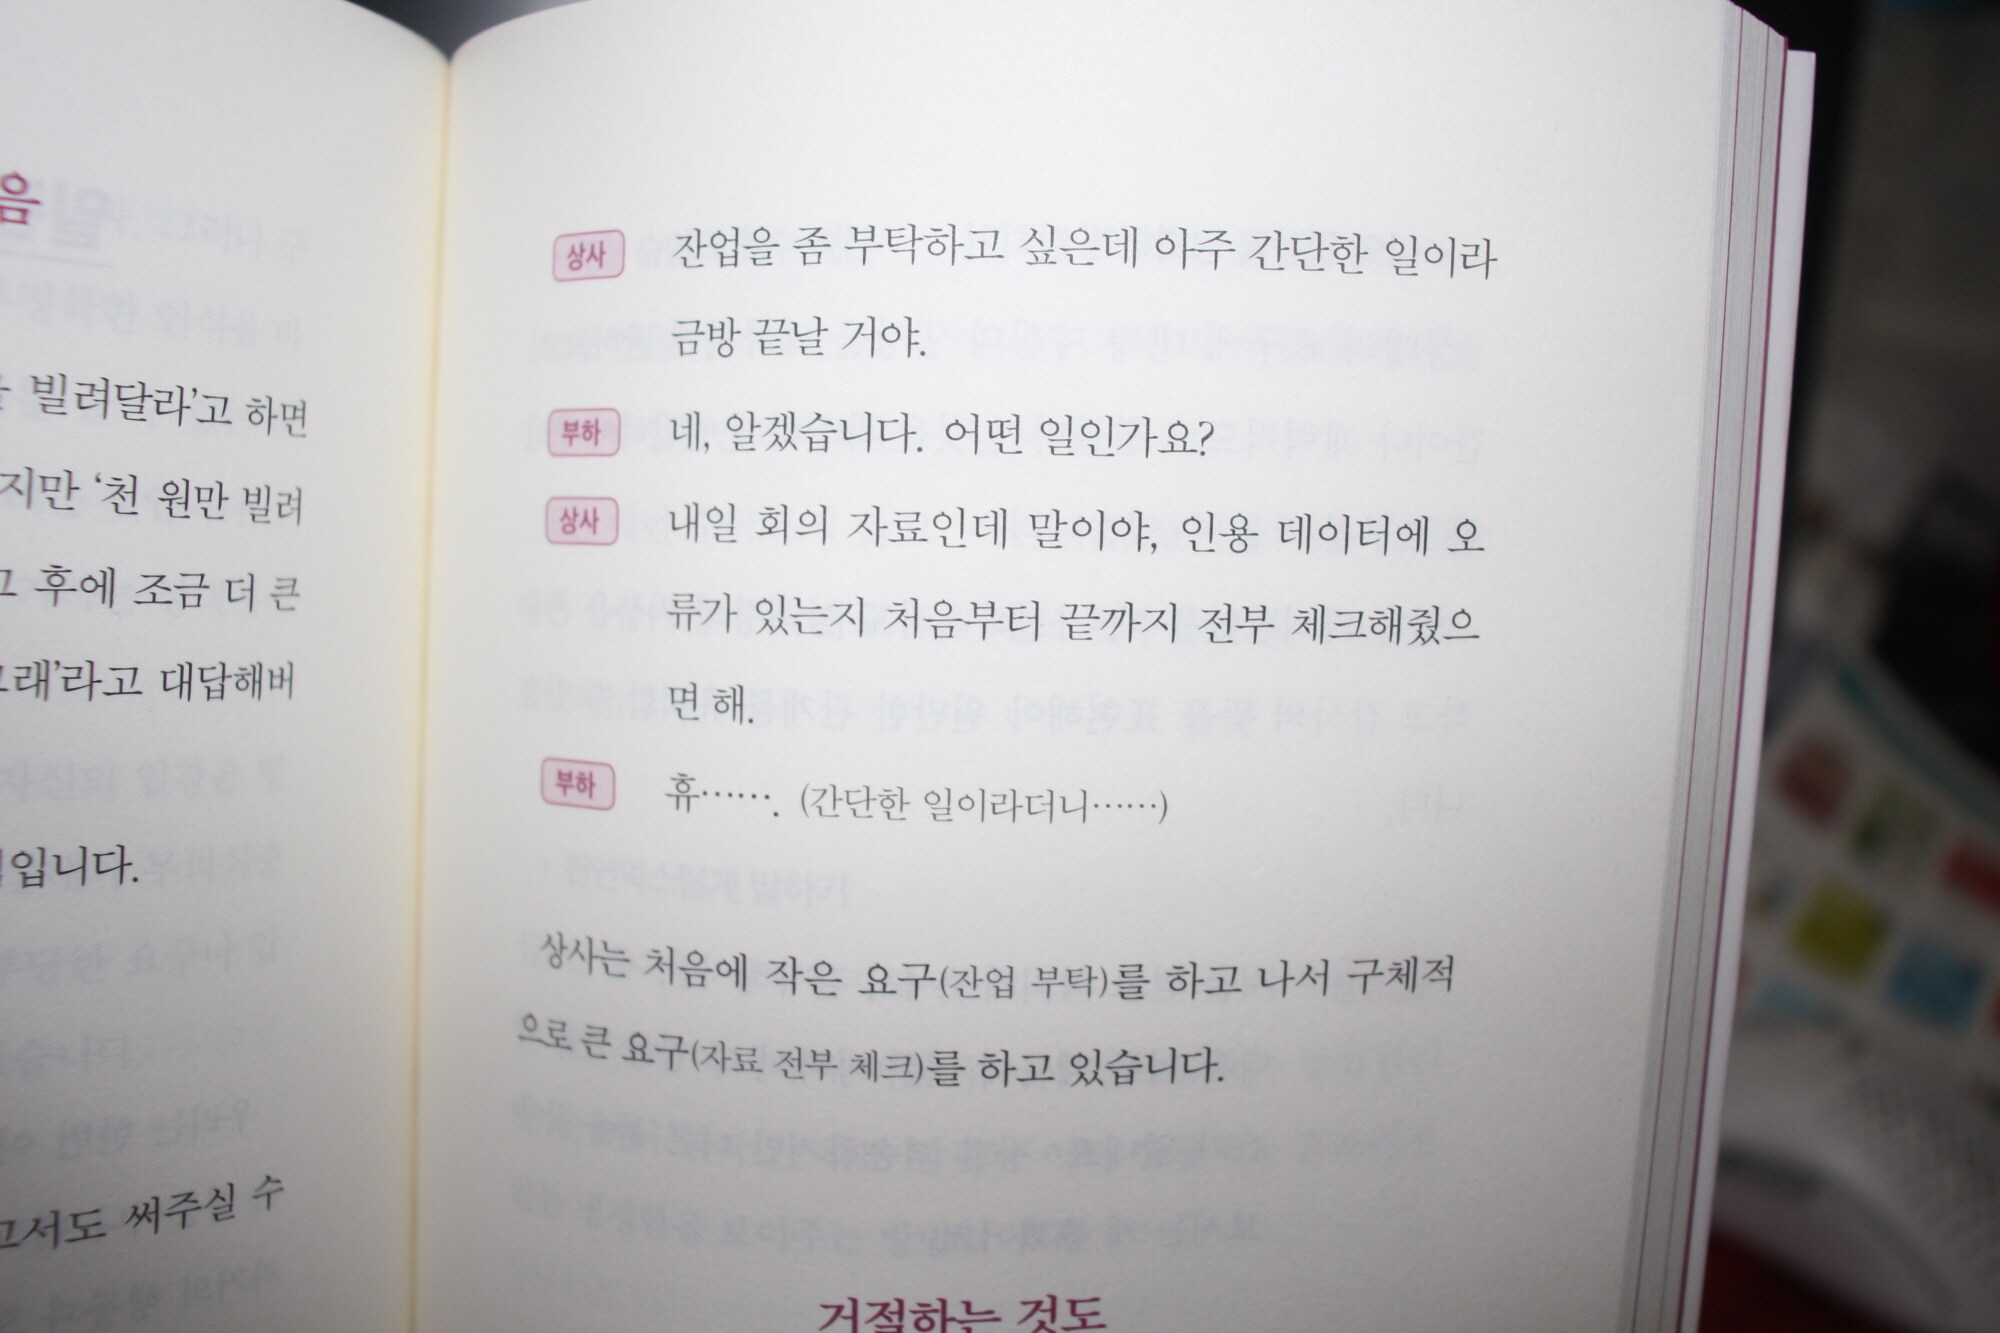 음
빌려달라’고 하면
지만 ‘천 원만 빌려
후에 조금 더 큰
래’라고 대답해버
입니다.
고서도 써주실 수
상사 잔업을 좀 부탁하고 싶은데 아주 간단한 일이라
금방 끝날 거야.
부하 네, 알겠습니다. 어떤 일인가요?
상사 내일 회의 자료인데 말이야, 인용 데이터에 오
류가 있는지 처음부터 끝까지 전부 체크해줬으
면 해.
부하 휴……. (간단한 일이라더니……)
상사는 처음에 작은 요구(잔업 부탁)를 하고 나서 구체적
으로 큰 요구(자료 전부 체크)를 하고 있습니다.
거절하는 것도